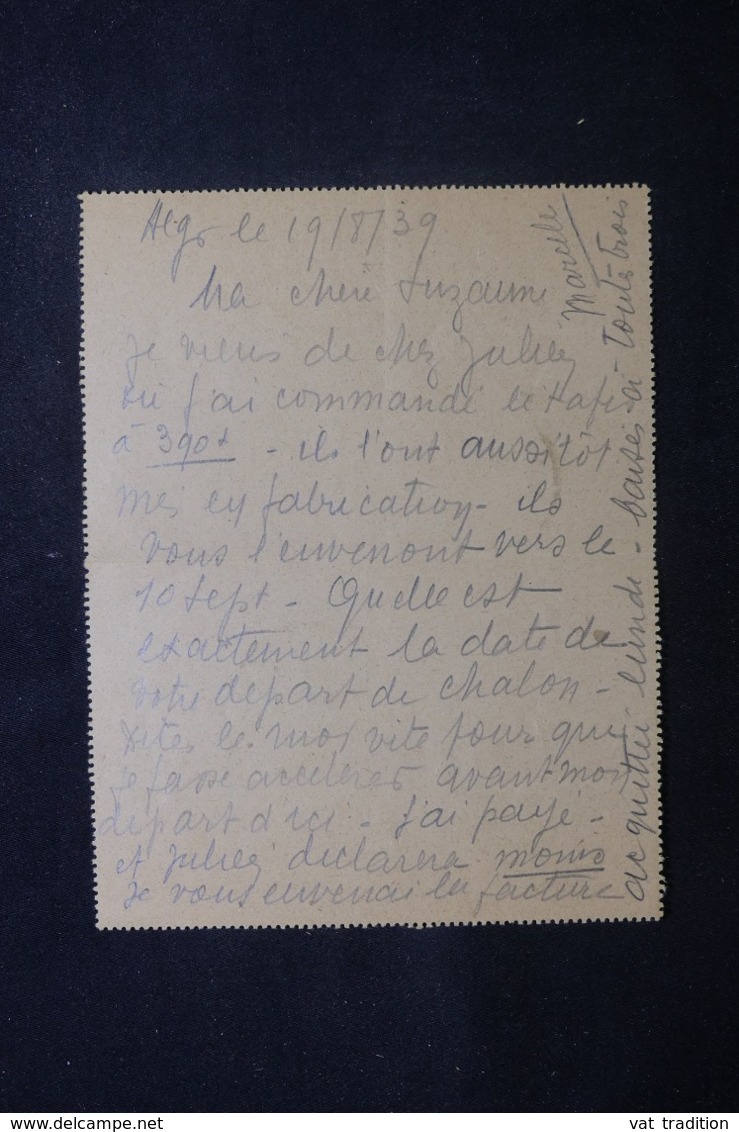 Alger le 19/8/39
Ma chère Suzanne
je viens de chez
où j'ai commandé le tapis
à 390f - ils l'ont aussitôt
mis en fabrication - ils
vous l'enverront vers le
10 Sept - Quelle est
exactement la date de
votre départ de Chalon -
dites le moi vite pour que
je fasse accélérer avant mon
départ d'ici - j'ai payé -
et déclarera moins
Je vous enverrai la facture
acquittée lundi - baisers à toutes trois
Marcelle
delcampe.net
vat tradition